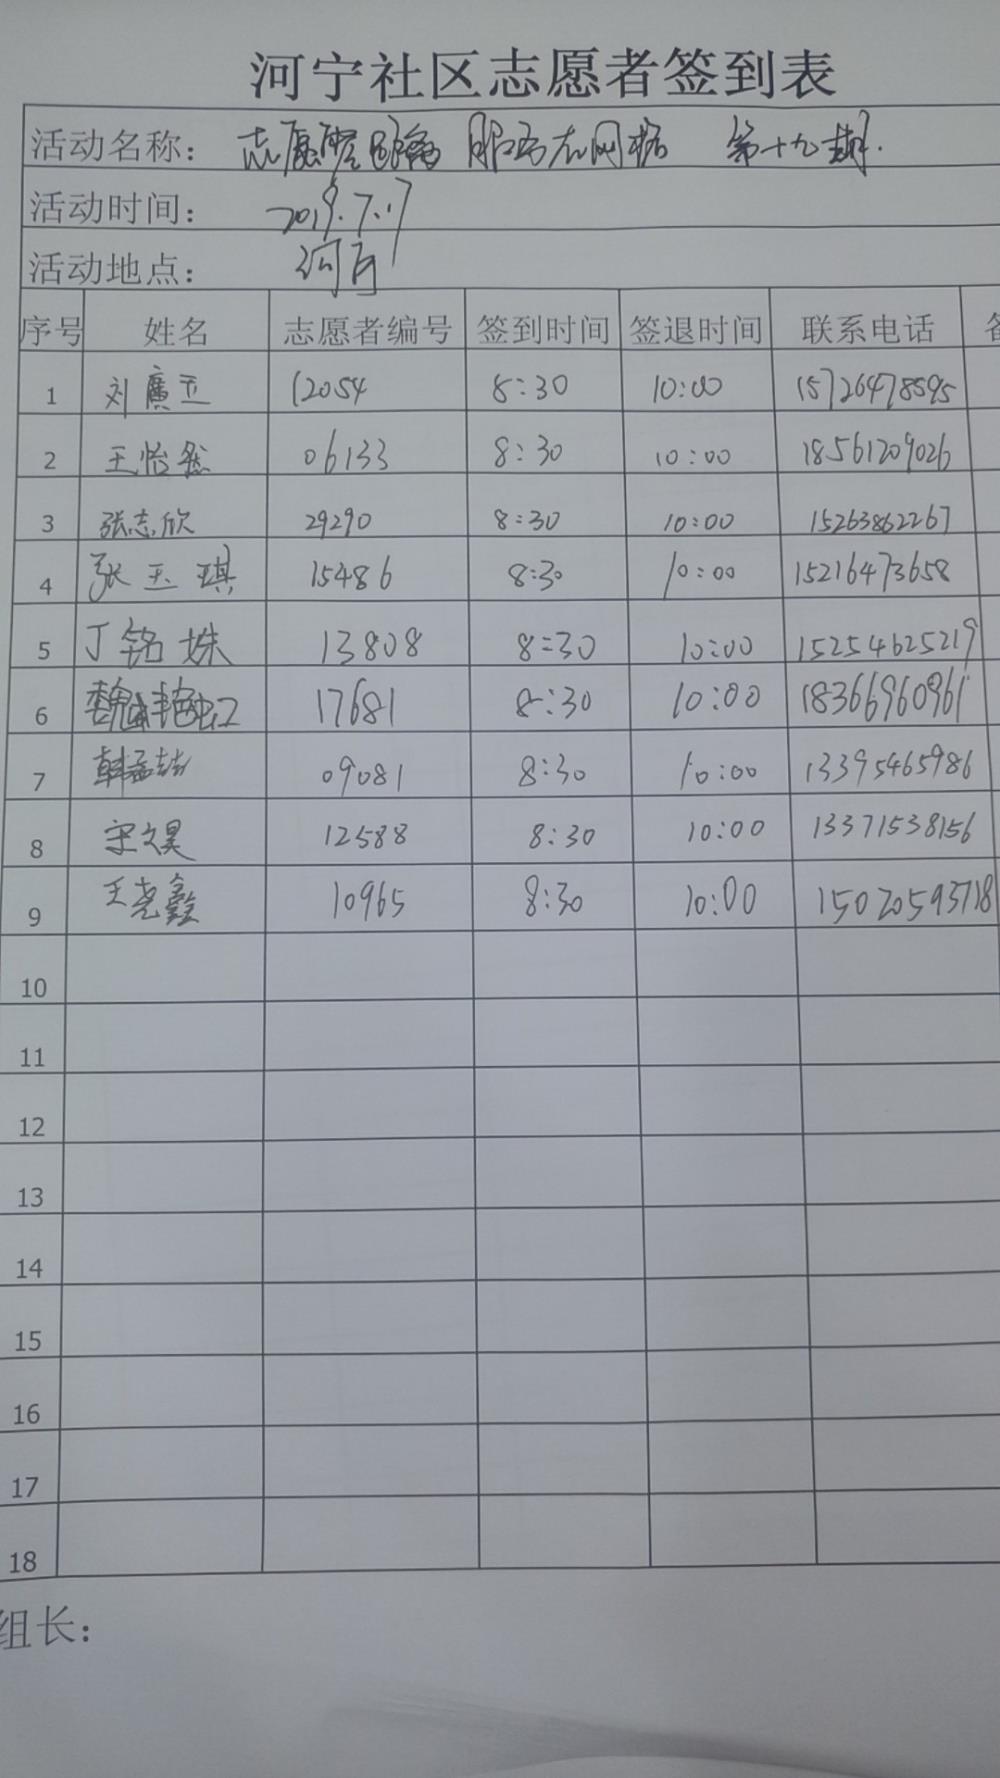 河宁社区志愿者签到表
活动名称： 志愿 服务 网格 第十九期.
活动时间： 2019.7.17
活动地点： 河宁
序号 姓名 志愿者编号 签到时间 签退时间 联系电话
1 刘廣玉 12054 8:30 10:00 15726478595
2 王怡然 06133 8:30 10:00 18561209026
3 张志欣 29290 8:30 10:00 15263862267
4 张玉琪 15486 8:30 10:00 15216473658
5 丁铭姝 13808 8:30 10:00 15254625219
6 魏 17681 8:30 10:00 18366960961
7 韩 09081 8:30 10:00 13395465986
8 宋文昊 12588 8:30 10:00 13371538156
9 王尧鑫 10965 8:30 10:00 15020593718
10
11
12
13
14
15
16
17
18
组长：